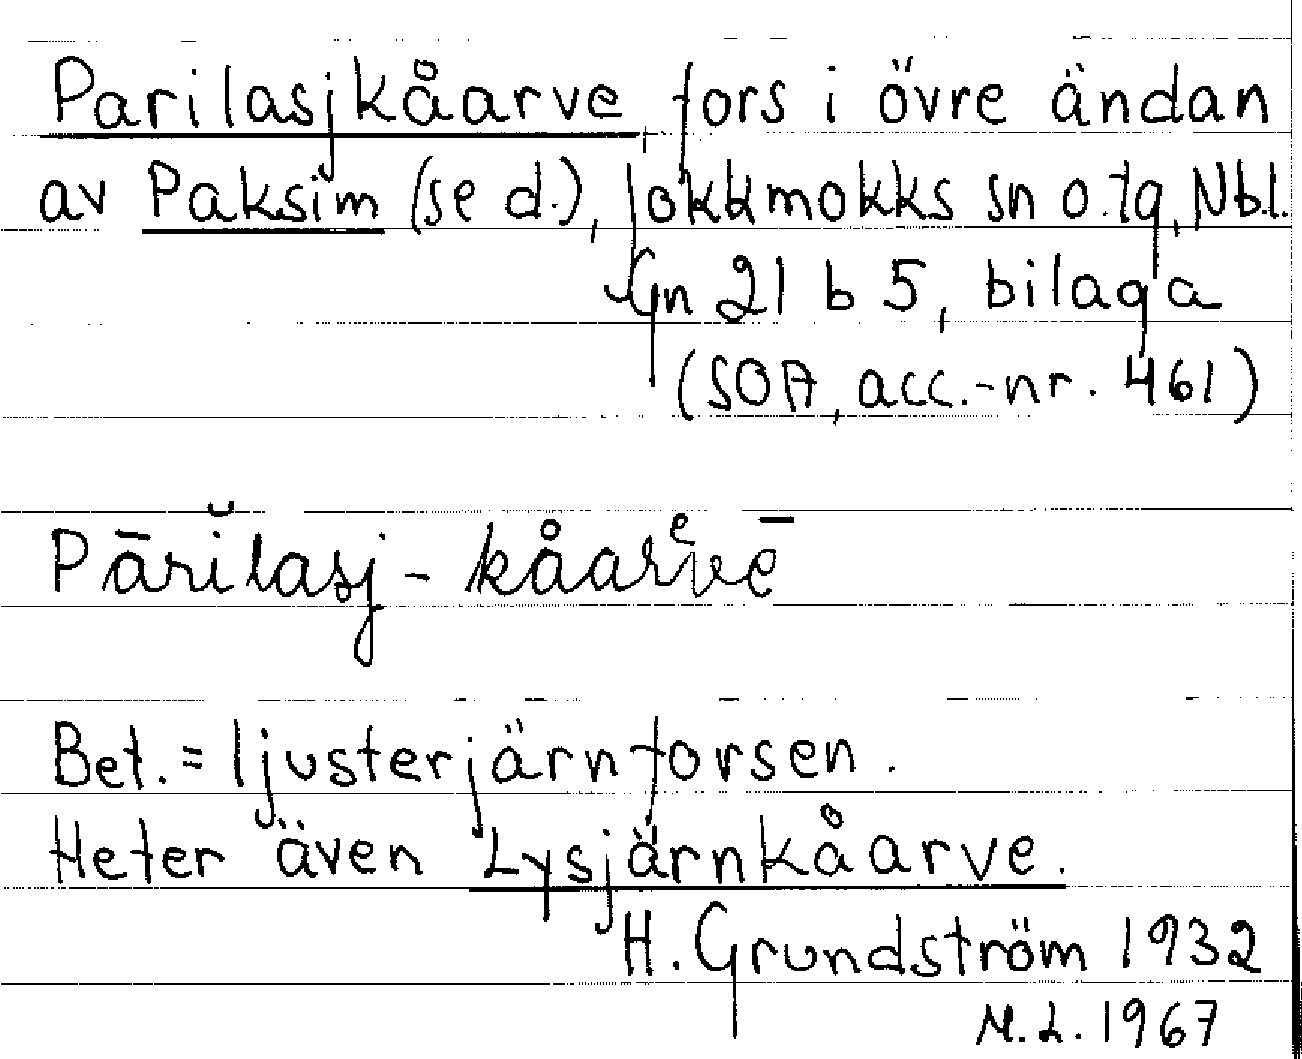 Parilasjkåarve, fors i övre ändan
av Paksim (se d.), Jokkmokks sn o. tg, Nbl.
Gn 21 b 5, bilaga
(SOA, acc.-nr. 461)
Pārĭlasj-kåarᵉvē
Bet. = ljusterjärnforsen.
Heter även Lysjärnkåarve.
H. Grundström 1932
M.L. 1967